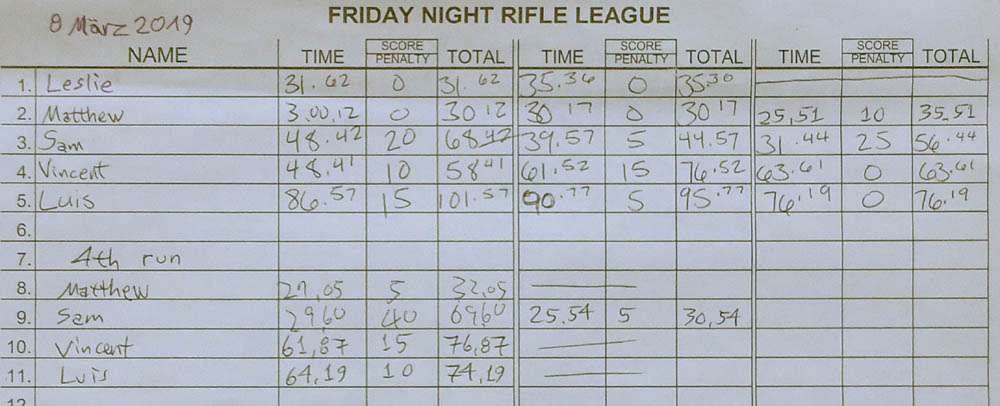 FRIDAY NIGHT RIFLE LEAGUE
8 März 2019
NAME TIME SCORE PENALTY TOTAL TIME SCORE PENALTY TOTAL TIME SCORE PENALTY TOTAL
1. Leslie 31.62 0 31.62 35.36 0 35.30
2. Matthew 3.00,12 0 30 12 30 17 0 30 17 25,51 10 35.51
3. Sam 48.42 20 68.42 39.57 5 44.57 31.44 25 56.44
4. Vincent 48.41 10 58 41 61.52 15 76.52 63.61 0 63.61
5. Luis 86.57 15 101.57 90.77 5 95.77 76.19 0 76.19
6.
7. 4th run
8. Matthew 27,05 5 32,05
9. Sam 29,60 40 69,60 25.54 5 30,54
10. Vincent 61,87 15 76,87
11. Luis 64,19 10 74,19
12